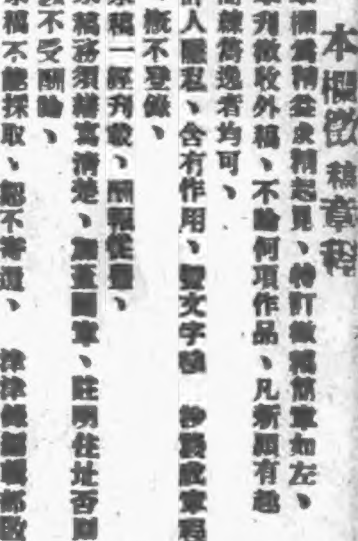 本欄徵稿章程
本欄為精益求精起見、特訂徵稿簡章如左、
刊徵收外稿、不論何項作品、凡新穎有趣
簡練雋逸者均可、
人隱私、含有作用、文字
概不登錄、
稿一經刊載、酬報從
稿務須繕寫清楚、蓋圖章、註明住址否則
不受酬
稿不能採取、恕不寄還、